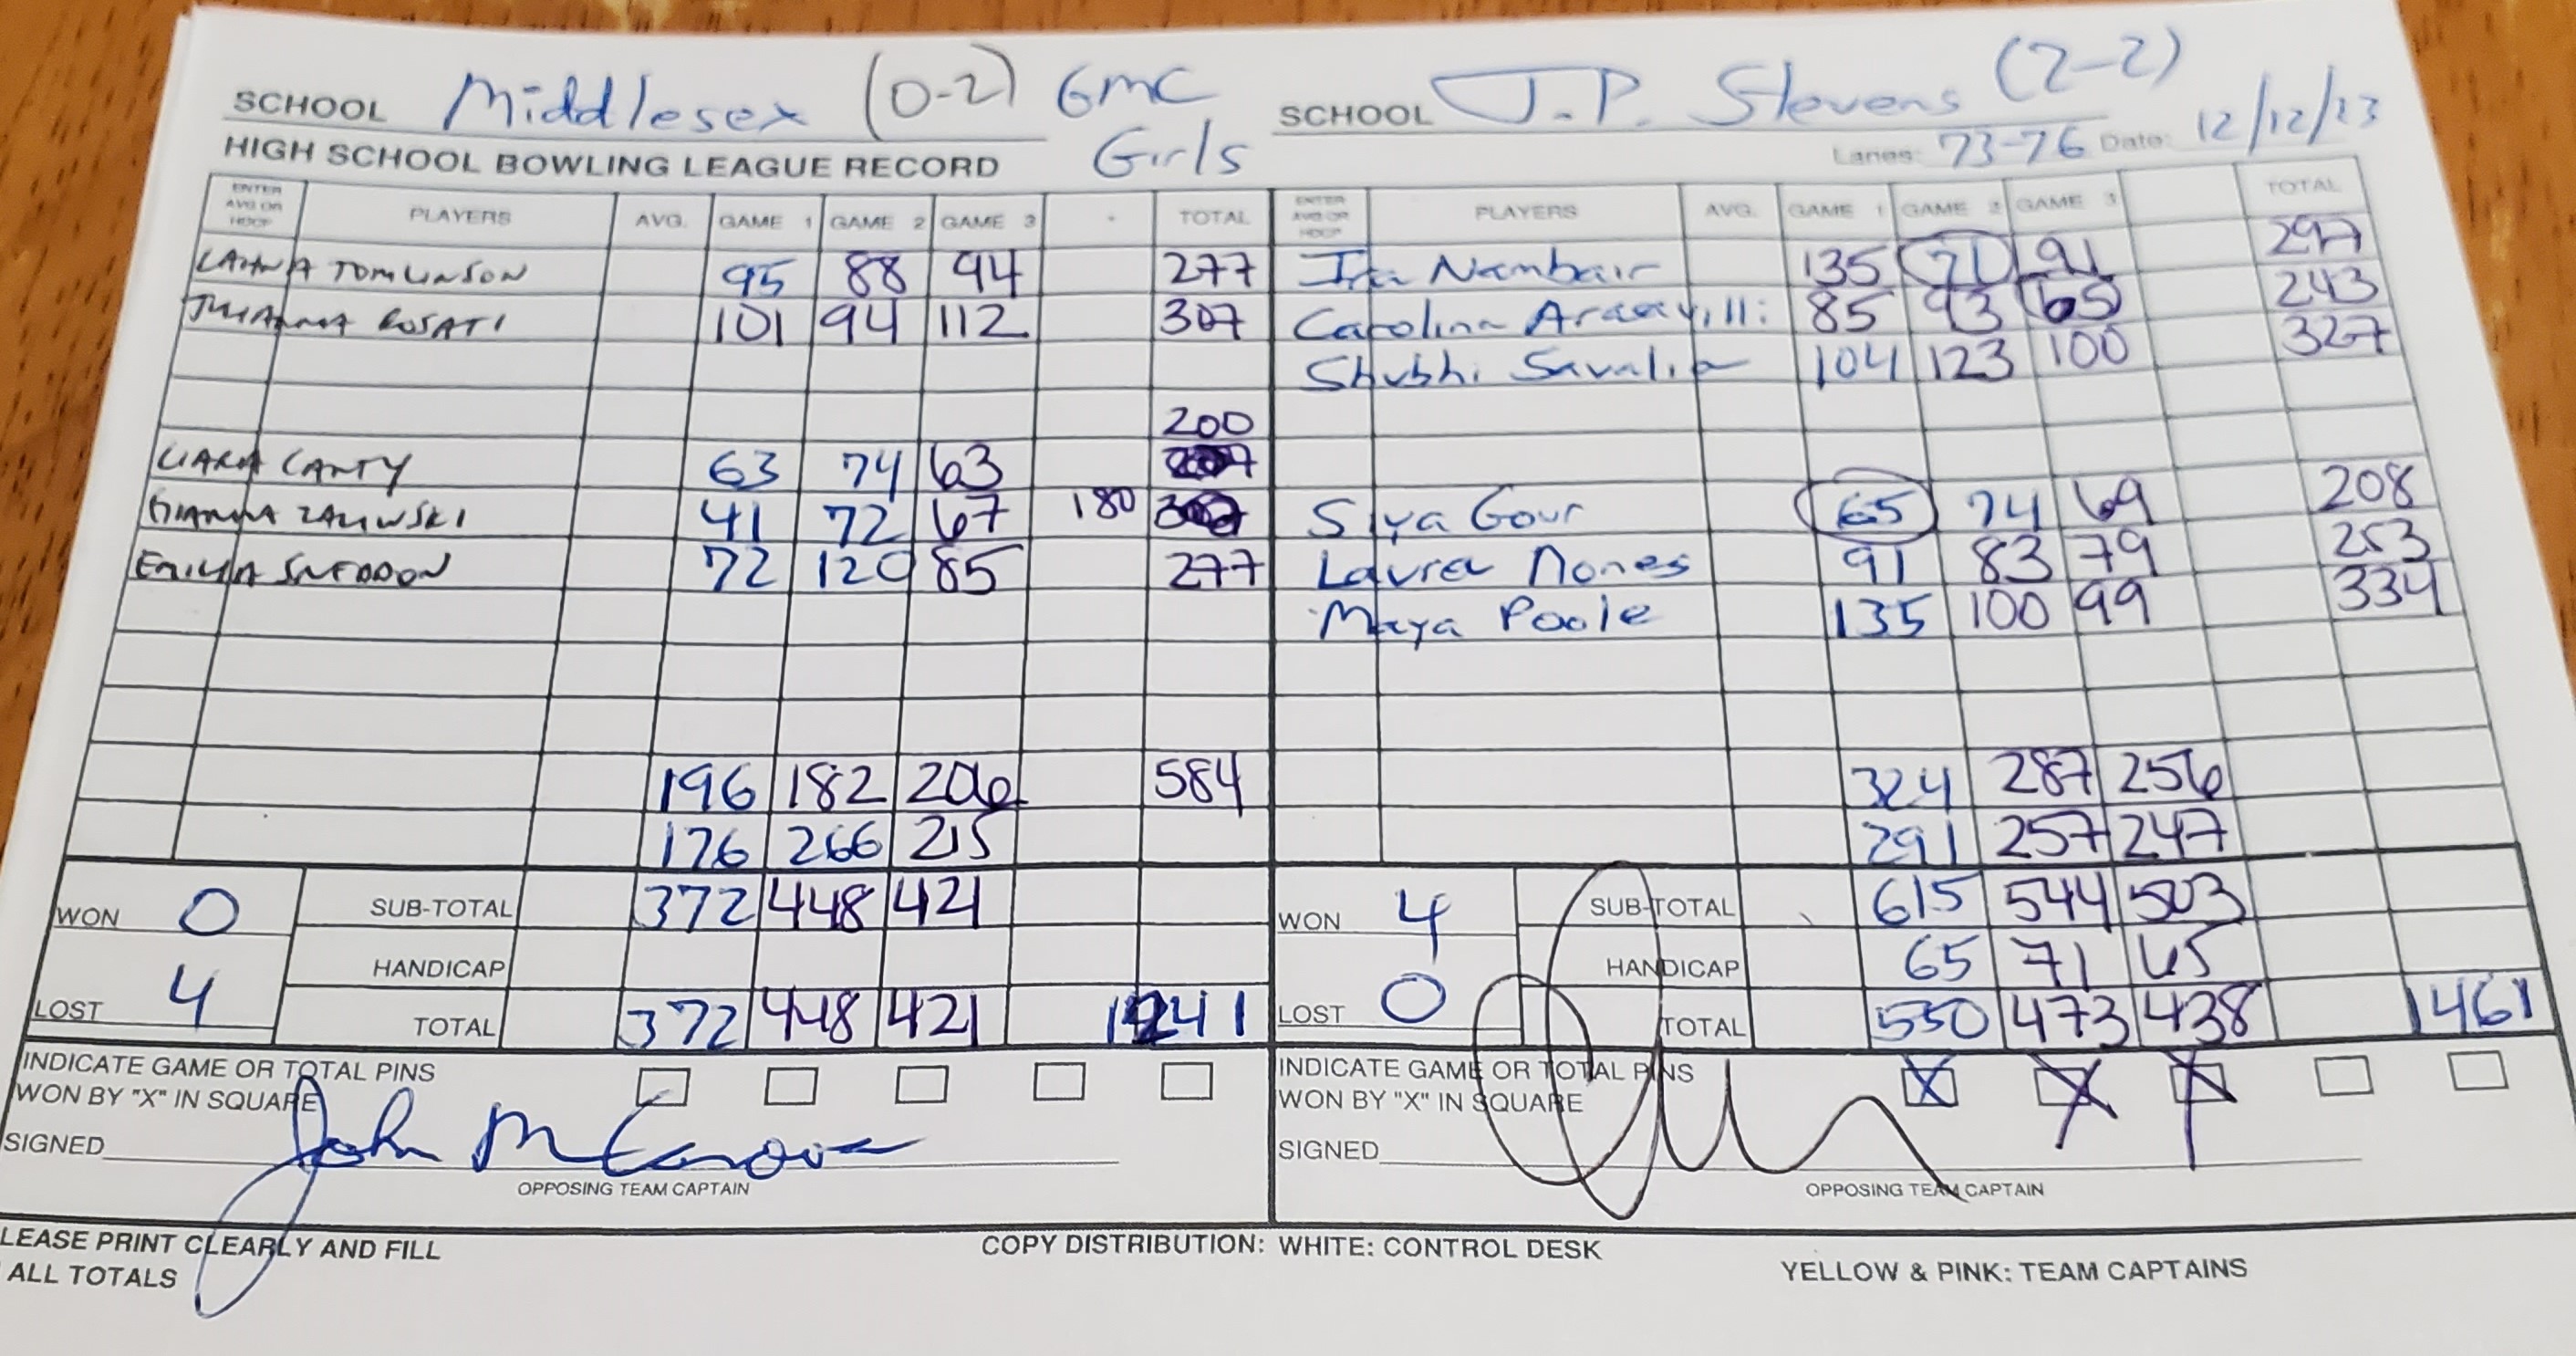 SCHOOL Middlesex (0-2) GMC Girls
SCHOOL J.P. Stevens (2-2)
HIGH SCHOOL BOWLING LEAGUE RECORD
Lanes: 73-76 Date: 12/12/23
ENTER AVG OR HDCP PLAYERS AVG. GAME 1 GAME 2 GAME 3 TOTAL
TOMLINSON 95 88 94 277
ROSATI 101 94 112 307
200
CANTY 63 74 63
41 72 67 180
72 120 85 277
196 182 206 584
176 266 215
WON 0 SUB-TOTAL 372 448 421
HANDICAP
LOST 4 TOTAL 372 448 421 1241
INDICATE GAME OR TOTAL PINS
WON BY "X" IN SQUARE
SIGNED John
OPPOSING TEAM CAPTAIN
ENTER AVG OR HDCP PLAYERS AVG. GAME 1 GAME 2 GAME 3 TOTAL
Nambair 135 71 91 297
Carolina 85 93 65 243
Shubhi Savalia 104 123 100 327
Siya Gour 65 74 69 208
Laura Nones 91 83 79 253
Maya Poole 135 100 99 334
324 287 256
291 257 247
WON 4 SUB-TOTAL 615 544 503
HANDICAP 65 71 65
LOST 0 TOTAL 550 473 438 1461
INDICATE GAME OR TOTAL PINS X X X
WON BY "X" IN SQUARE
SIGNED
OPPOSING TEAM CAPTAIN
LEASE PRINT CLEARLY AND FILL
ALL TOTALS
COPY DISTRIBUTION: WHITE: CONTROL DESK
YELLOW & PINK: TEAM CAPTAINS